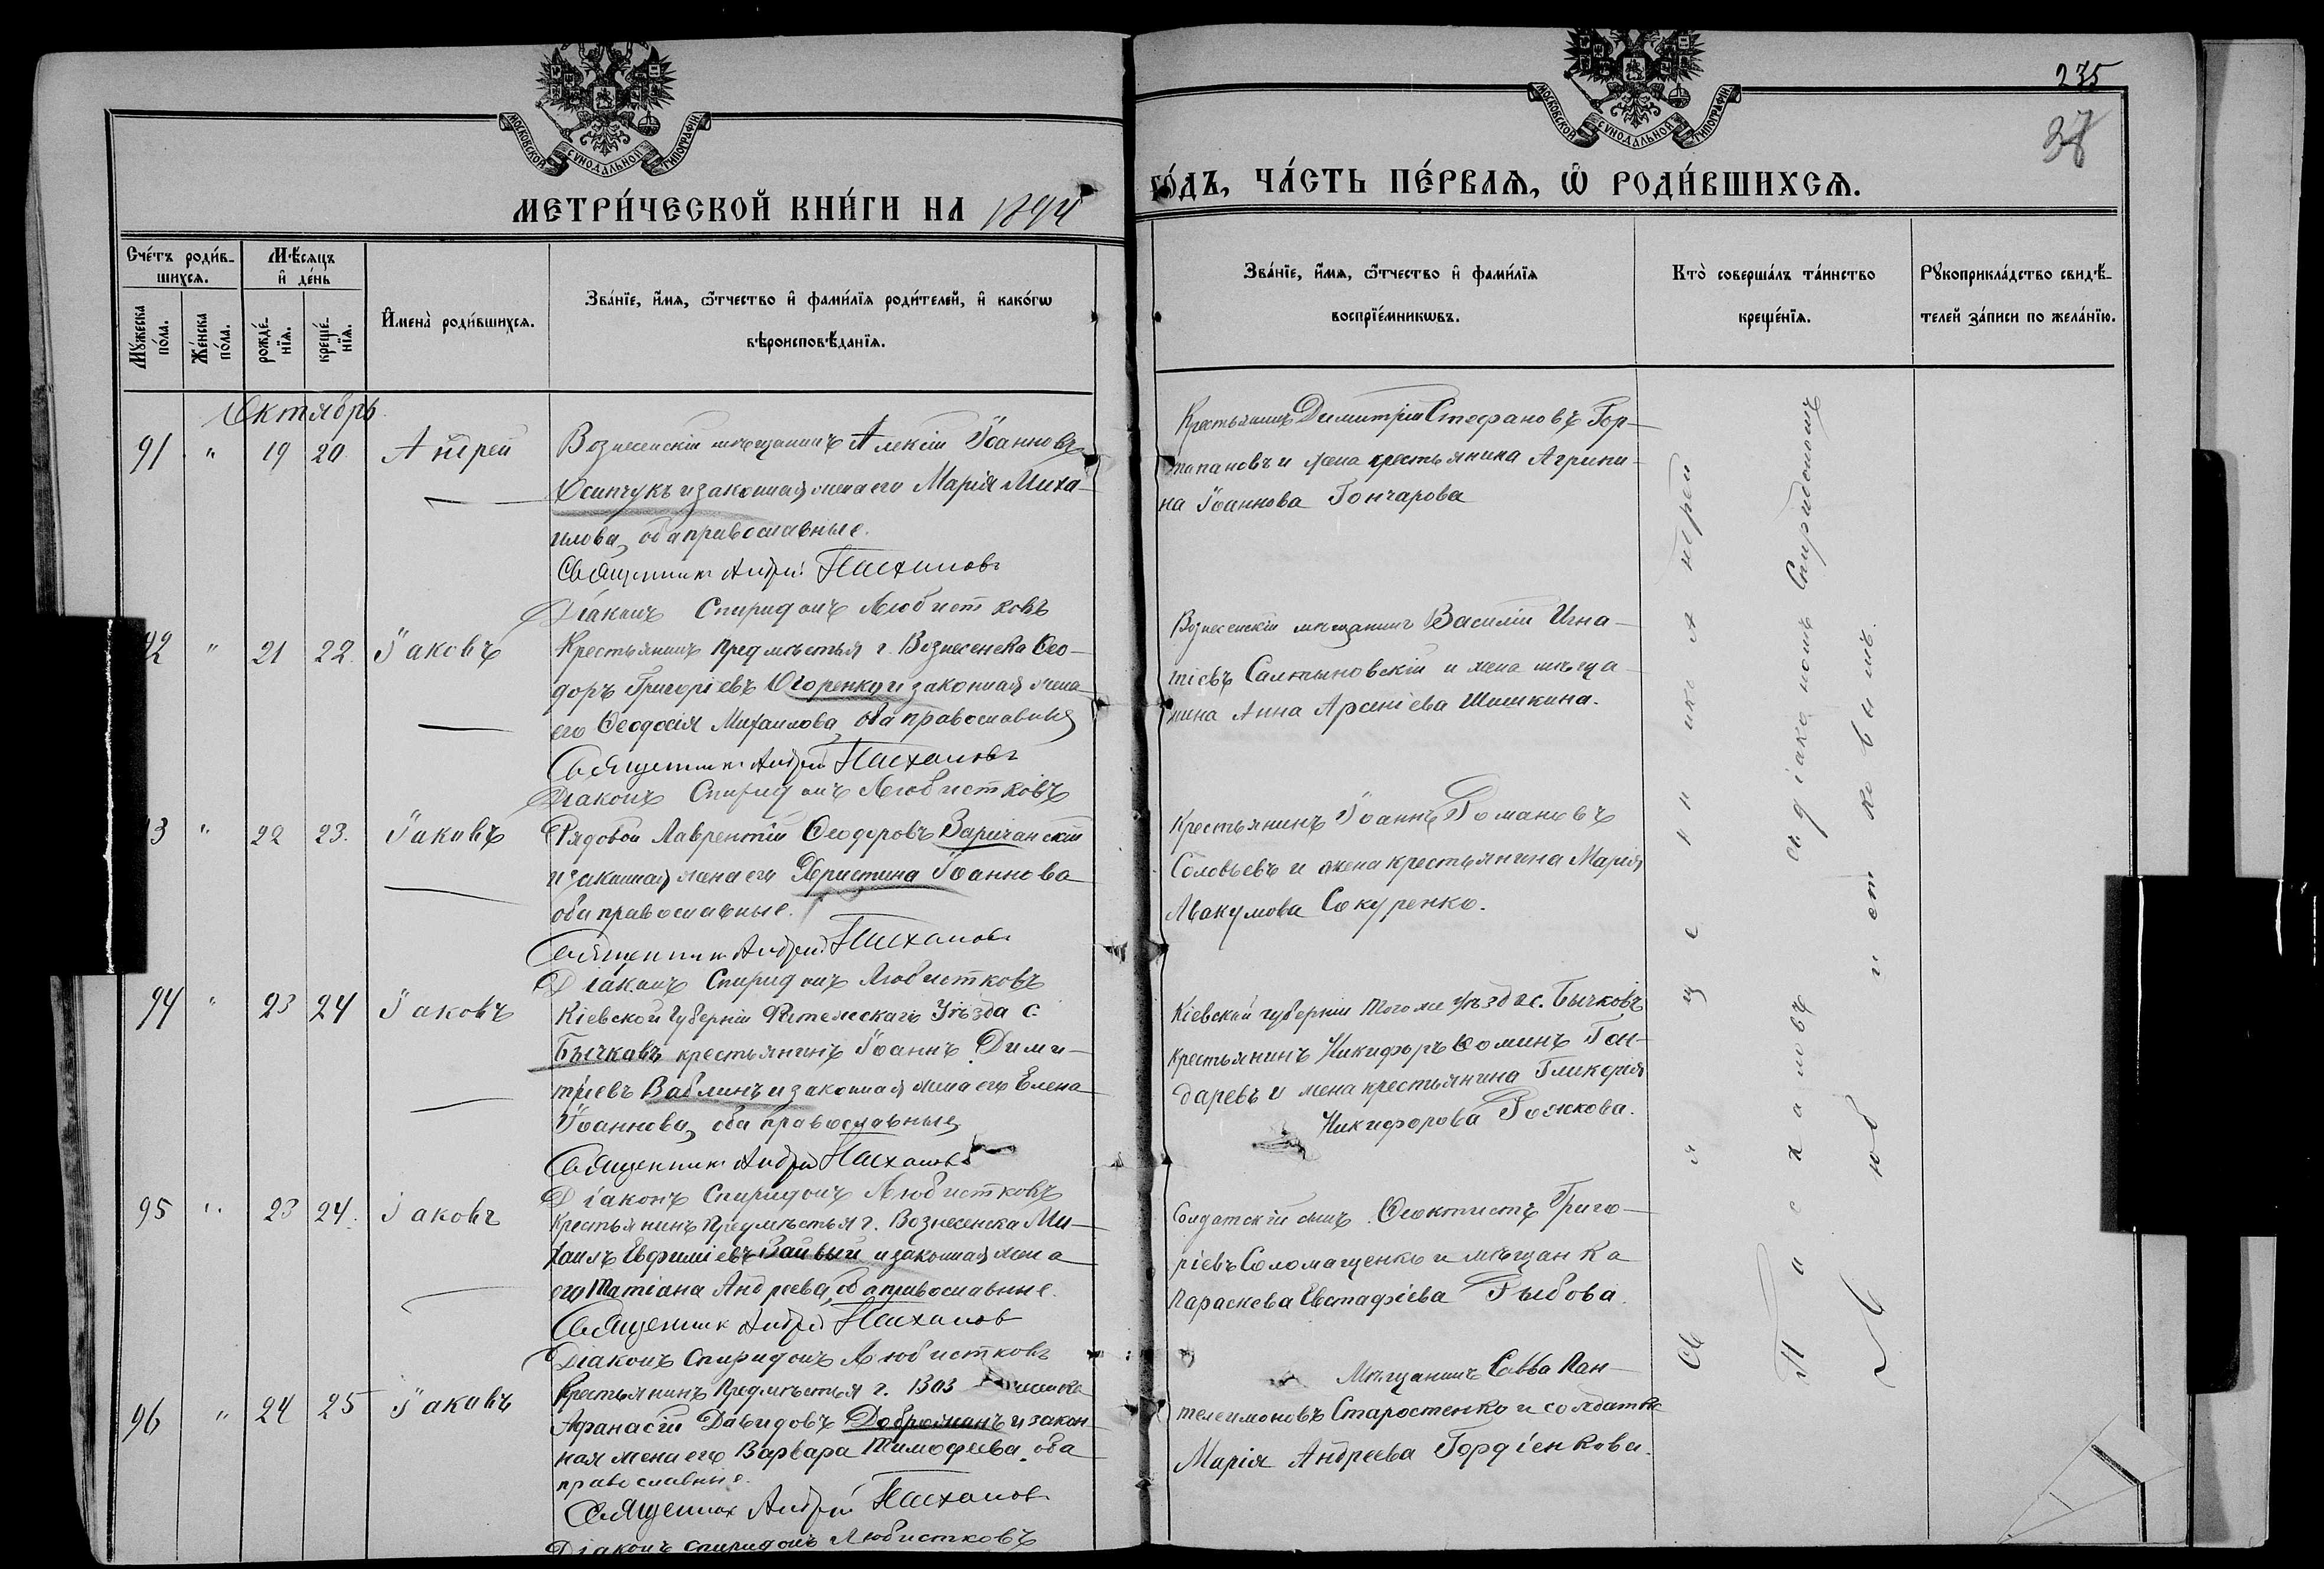 МОСКОВСКОЙ СѴНОДАЛЬНОЙ ТИПОГРАФІИ
МОСКОВСКОЙ СѴНОДАЛЬНОЙ ТИПОГРАФІИ
235
37
МЕТРИ́ЧЕСКОЙ КНИ́ГИ НА 1894
ГО́ДЪ, ЧА́СТЬ ПЕ́РВАѦ, Ѽ РОДИ́ВШИХСѦ.
Сче́тъ роди́в-
шихсѧ.
Мꙋ́жеска по́ла.
Же́нска по́ла.
Мѣ́сяцъ
и҆ де́нь
рожде́-
нїѧ.
креще́-
нїѧ.
И҆мена̀ роди́вшихсѧ.
Зва́нїе, и҆́мѧ, ѻ҆́тчество и҆ фами́лїѧ роди́телей, и҆ како́гѡ
вѣроисповѣ́данїѧ.
Зва́нїе, и҆́мѧ, ѻ҆́тчество и҆ фами́лїѧ
воспрїе́мникѡвъ.
Кто̀ соверша́лъ та́инство
креще́нїѧ.
Рꙋкоприкла́дство свидѣ́-
телей за́писи по жела́нїю.
Октябрь
91 " 19 20 Андрей
Вознесенскій мѣщанинъ Алексій Іоанновъ
Осипчукъ и законная жена его Марія Миха-
илова, оба православные.
Священникъ Андрей Пасхаловъ
Діаконъ Спиридонъ Любистковъ
Крестьянинъ Димитрій Стефановъ Гор-
и жена крестьянина Агрипи-
на Іоаннова Гончарова
92 " 21 22. Іаковъ
Крестьянинъ предмѣстья г. Вознесенска Ѳео-
доръ Григоріевъ и законная жена
его Ѳеодосія Михаилова, оба православные
Священникъ Андрей Пасхаловъ
Діаконъ Спиридонъ Любистковъ
Вознесенскій мѣщанинъ Василій Игна-
тіевъ Салтыновскій и жена мѣща-
нина Анна Арсеніева Шишкина.
93 " 22 23. Іаковъ
Рядовой Лаврентій Ѳеодоровъ Заричанскій
и законная жена его Христина Іоаннова
оба православные.
Священникъ Андрей Пасхаловъ
Діаконъ Спиридонъ Любистковъ
Крестьянинъ Іоаннъ Романовъ
Соловьевъ и жена крестьянина Марія
Авакумова Сокуренко.
94 " 23 24 Іаковъ
Кіевской губерніи Уѣзда с.
Бычкавъ крестьянинъ Іоаннъ Дими-
тріевъ Ваблинъ и законная жена его Елена
Іоаннова, оба православные
Священникъ Андрей Пасхаловъ
Діаконъ Спиридонъ Любистковъ
Кіевской губерніи того же уѣзда с. Бычковъ
крестьянинъ Никифоръ Ѳоминъ Гон-
даревъ и жена крестьянина Гликерія
Никифорова Рожкова.
95 " 23 24. Іаковъ
Крестьянинъ предмѣстья г. Вознесенска Ми-
хаилъ Евфиміевъ и законная жена
его Татіана Андреева, оба православные.
Священникъ Андрей Пасхаловъ
Діаконъ Спиридонъ Любистковъ
Солдатскій сынъ Ѳеоктистъ Григо-
ріевъ Соломащенко и мѣщанка
Параскева Евстафіева Рыбова.
96 " 24 25 Іаковъ
Крестьянинъ предмѣстья г. Воз
Афанасій Давидовъ Доброжанъ и закон-
ная жена его Варвара Тимофеева, оба
православные.
Священникъ Андрей Пасхаловъ
Діаконъ Спиридонъ Любистковъ
Мѣщанинъ Савва Пан-
телеимоновъ Старостенко и солдатка
Марія Андреева Гордіенкова.
Священникъ Андрей
Пасхаловъ съ діакономъ Спиридономъ
Любистковымъ.